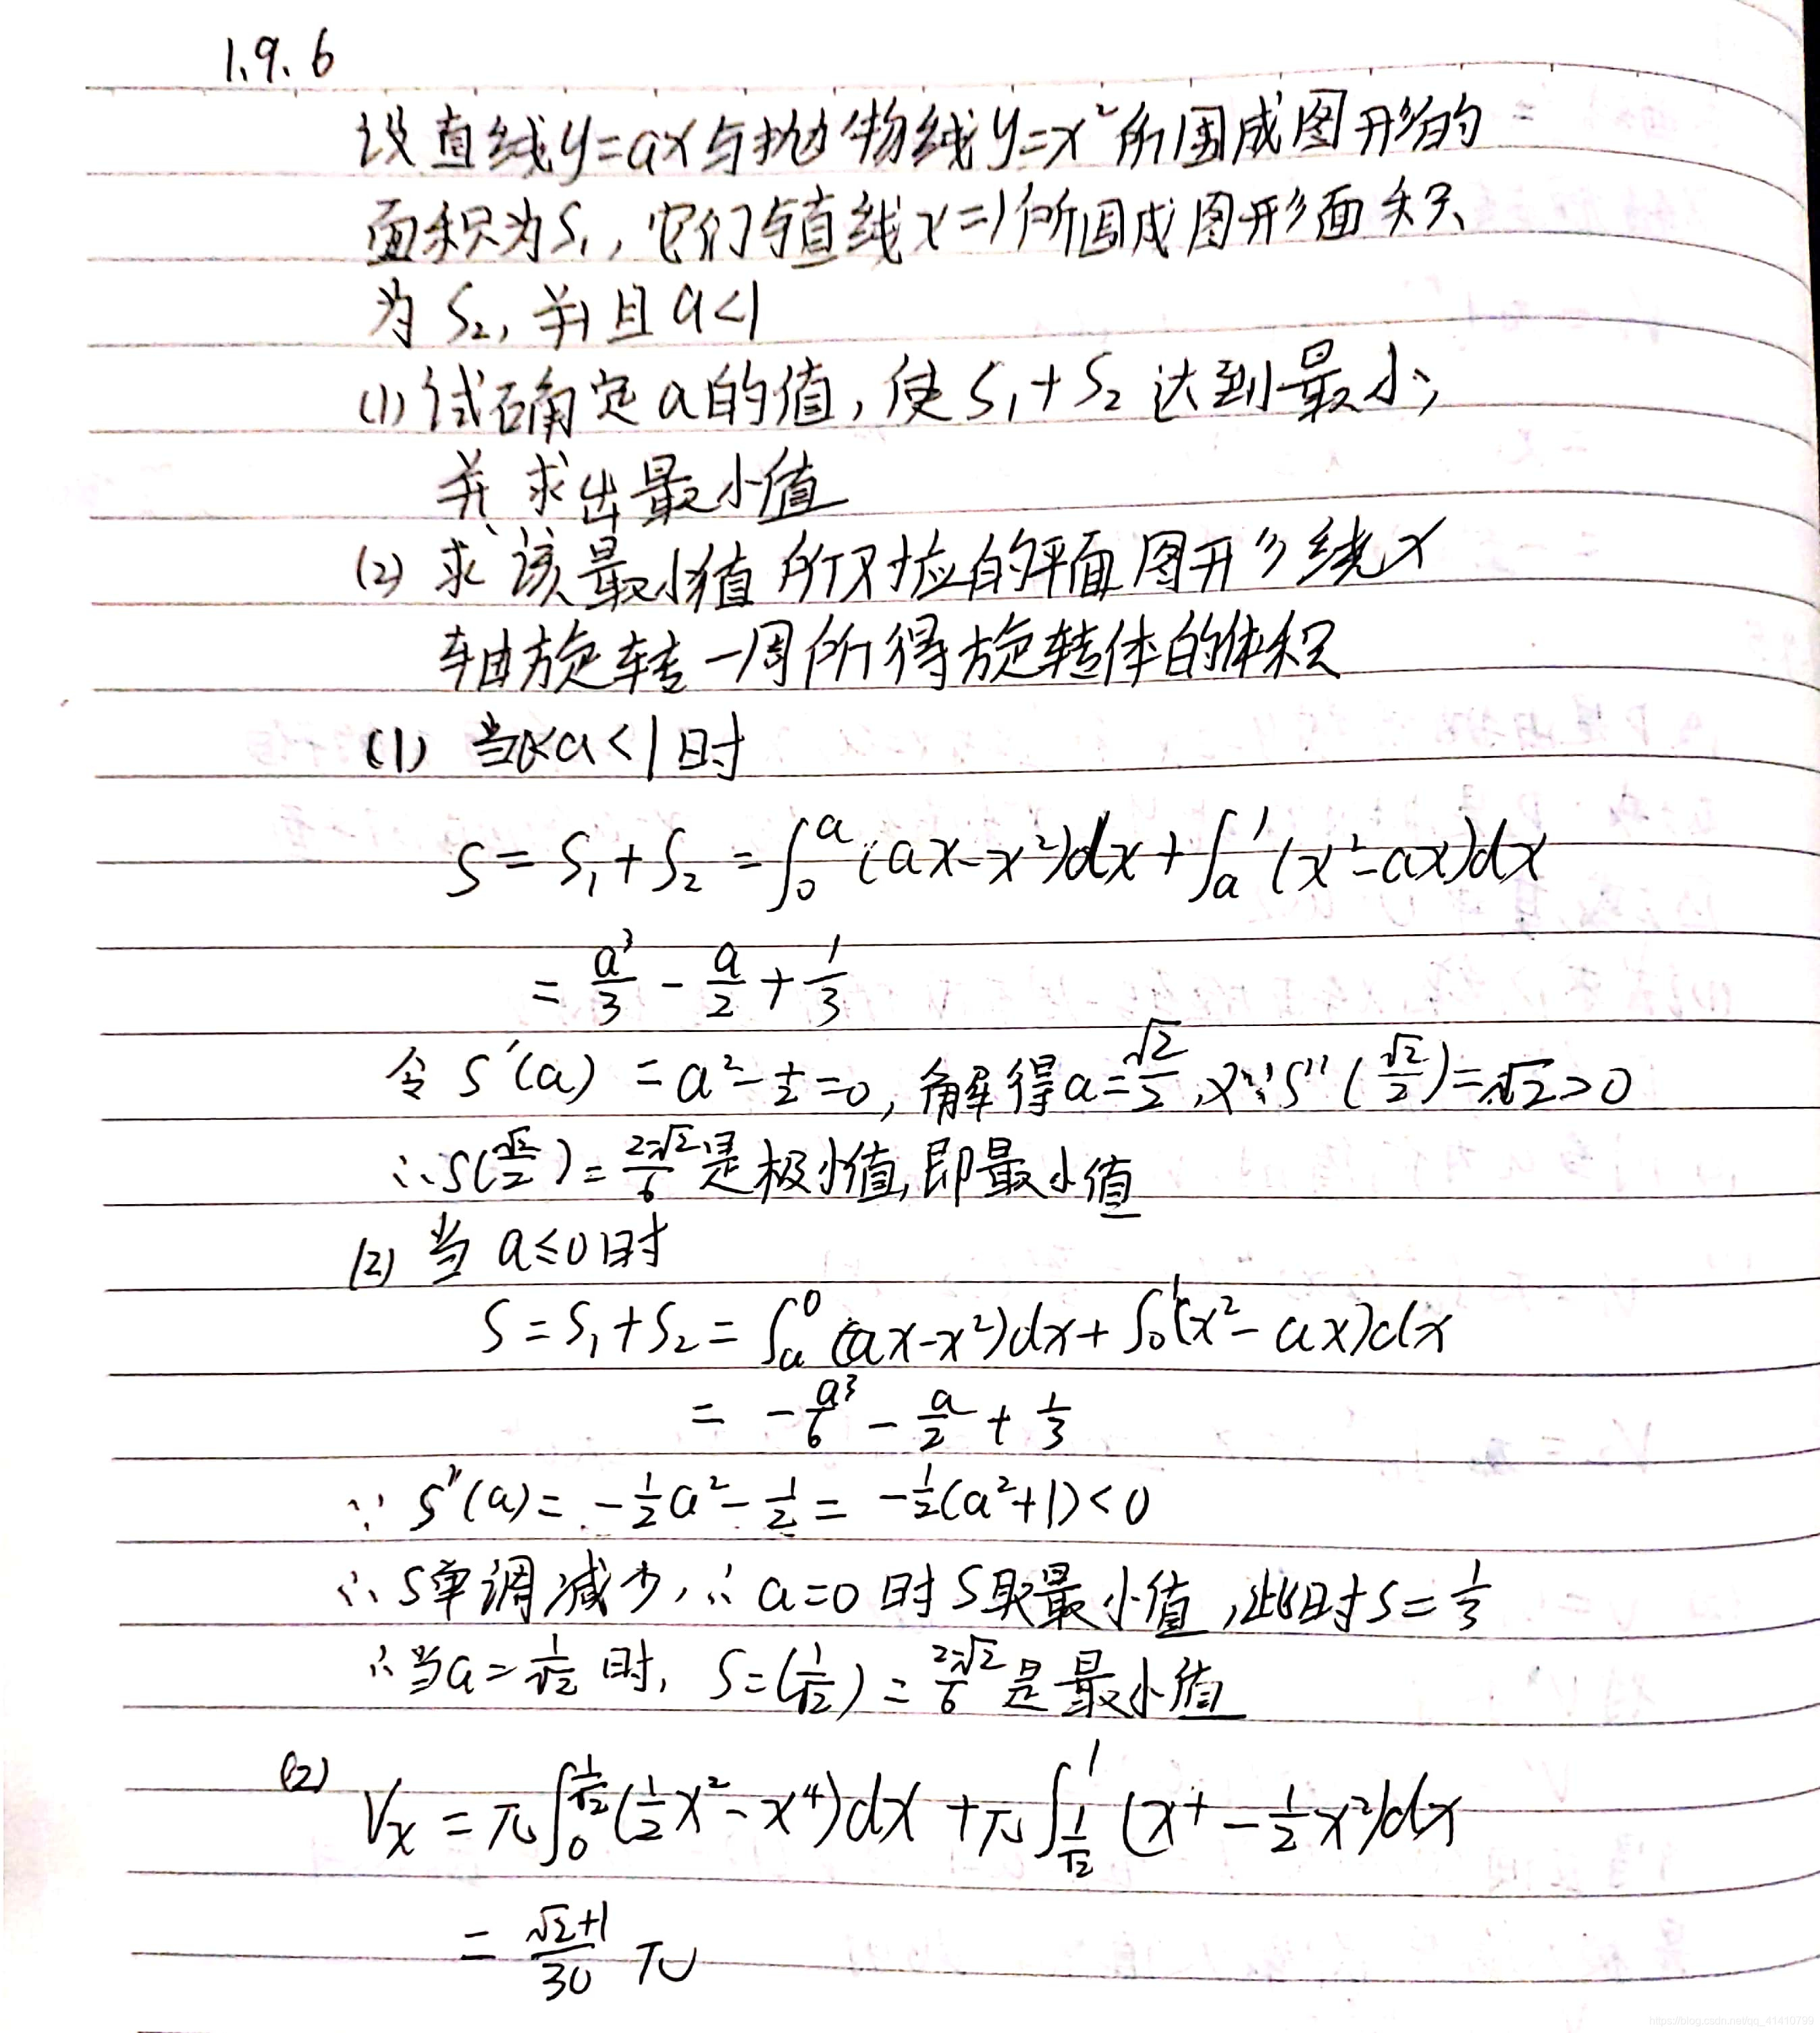 1.9.6
设直线y=ax与抛物线y=x²所围成图形的
面积为S₁,它们与直线x=1所围成图形面积
为S₂,并且a<1
(1)试确定a的值,使S₁+S₂达到最小,
并求出最小值
(2)求该最小值所对应的平面图形绕x
轴旋转一周所得旋转体的体积
(1) 当0<a<1时
S=S₁+S₂=∫₀ᵃ(ax-x²)dx+∫ₐ¹(x²-ax)dx
=a³/3-a/2+1/3
令S'(a)=a²-1/2=0,解得a=√2/2,又∵S''(√2/2)=√2>0
∴S(√2/2)=(2-√2)/6是极小值,即最小值
(2)当a≤0时
S=S₁+S₂=∫ₐ⁰(ax-x²)dx+∫₀¹(x²-ax)dx
=-a³/6-a/2+1/3
∵S'(a)=-1/2a²-1/2=-1/2(a²+1)<0
∴S单调减少,∴a=0时S取最小值,此时S=1/3
∴当a=1/√2时,S=(1/√2)=(2-√2)/6是最小值
(2) Vx=π∫₀^(1/√2)(1/2x²-x⁴)dx+π∫_(1/√2)^1(x⁴-1/2x²)dx
=(√2+1)/30 π
https://blog.csdn.net/qq_41410799